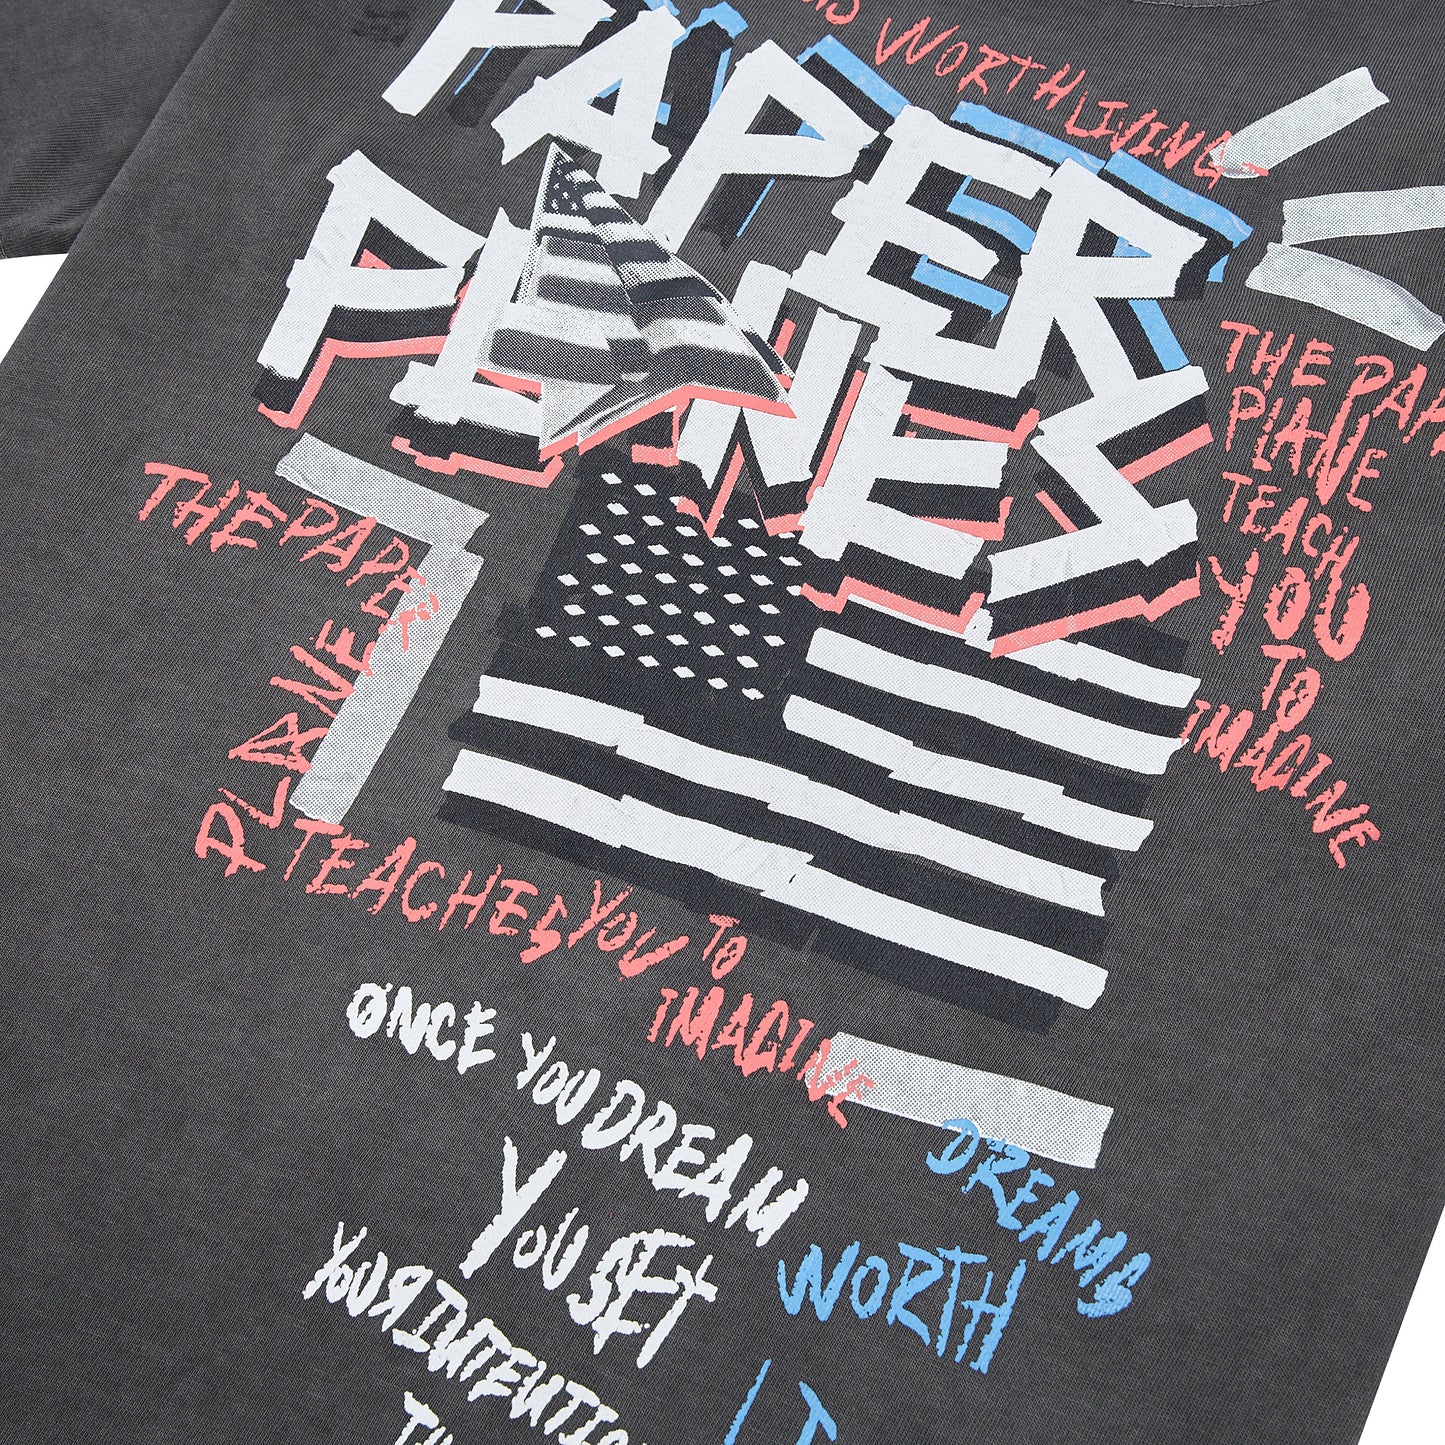 WORTH LIVING
PAPER
PLANES
THE PAPER
PLANE
TEACHES YOU TO
IMAGINE
THE PAP
PLANE
TEACH
YOU
TO
IMAGINE
ONCE YOU DREAM
YOU SET
YOUR INTENTIO
DREAMS
WORTH